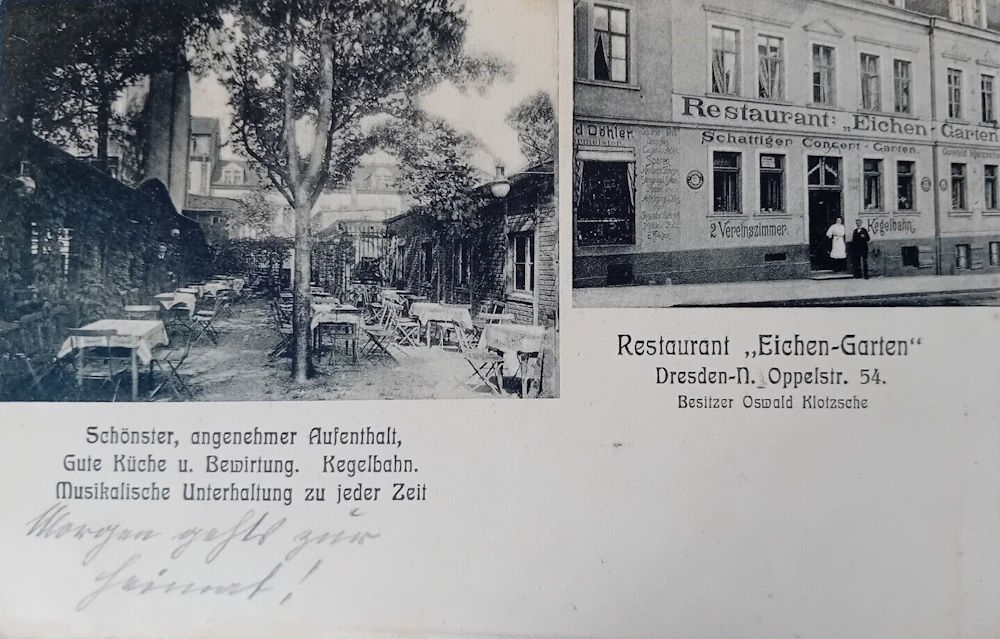 Restaurant: „Eichen-Garten
Schattiger Concert-Garten.
d Döhler
2 Vereinszimmer.
Kegelbahn.
Restaurant „Eichen-Garten“
Dresden-N. Oppelstr. 54.
Besitzer Oswald Klotzsche
Schönster, angenehmer Aufenthalt,
Gute Küche u. Bewirtung. Kegelbahn.
Musikalische Unterhaltung zu jeder Zeit
Morgen gehts zur
Heimat!